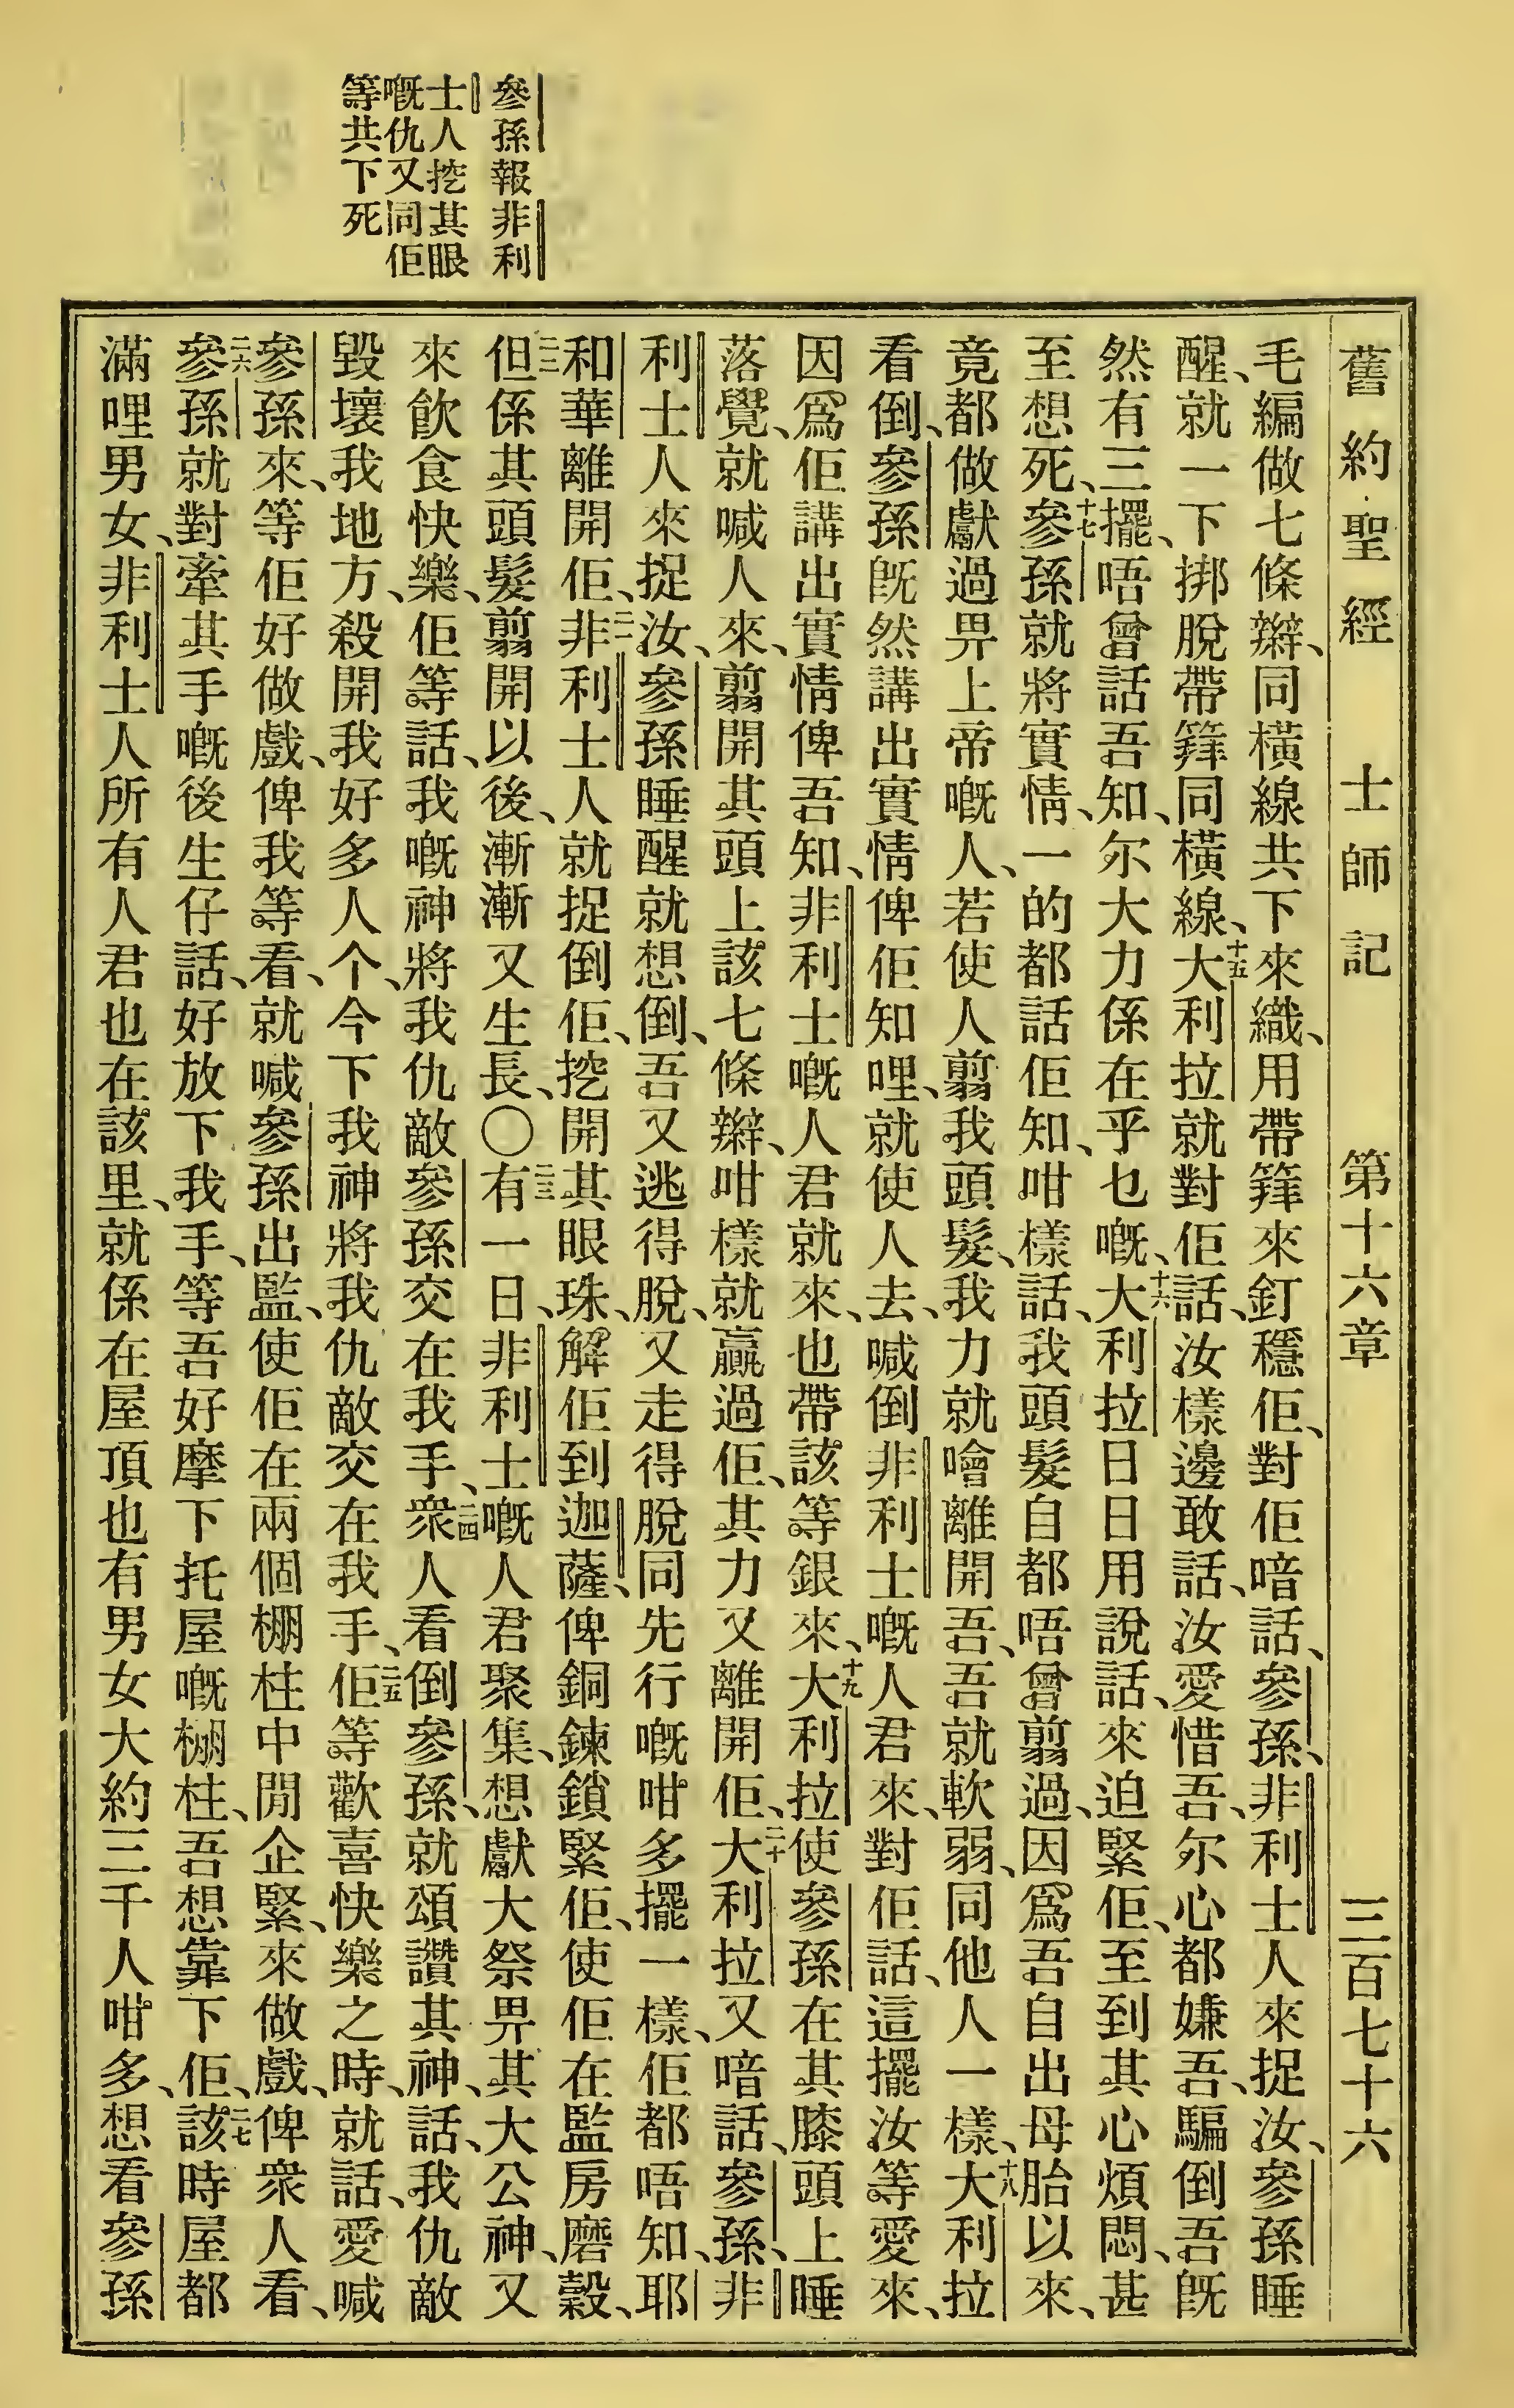 舊約聖經　士師記　第十六章　三百七十六
參孫報非利
士人挖其眼
嘅仇又同佢
等共下死
毛編做七條辮、同橫線共下來織、用帶䈆來釘穩佢、對佢喑話、參孫、非利士人來捉汝、參孫睡
醒、就一下挷脫帶䈆同橫線、十五大利拉就對佢話、汝樣邊敢話、汝愛惜吾、尔心都嫌吾、騙倒吾旣
然有三擺、唔曾話吾知、尔大力係在乎乜嘅、十六大利拉日日用說話、來迫緊佢、至到其心煩悶、甚
至想死、十七參孫就將實情、一的都話佢知、咁樣話、我頭髮自都唔曾翦過、因爲吾自出母胎以來、
竟都做獻過畀上帝嘅人、若使人翦我頭髮、我力就噲離開吾、吾就軟弱、同他人一樣、十八大利拉
看倒、參孫旣然講出實情俾佢知哩、就使人去、喊倒非利士嘅人君來、對佢話、這擺汝等愛來、
因爲佢講出實情俾吾知、非利士嘅人君就來、也帶該等銀來、十九大利拉使參孫在其膝頭上睡
落覺、就喊人來、翦開其頭上該七條辮、咁樣就贏過佢、其力又離開佢、二十大利拉又喑話、參孫、非
利士人來捉汝、參孫睡醒就想倒、吾又逃得脫、又走得脫同先行嘅咁多擺一樣、佢都唔知、耶
和華離開佢、二一非利士人就捉倒佢、挖開其眼珠、解佢到迦薩、俾銅鍊鎖緊佢、使佢在監房磨穀、
二二但係其頭髮翦開以後、漸漸又生長、〇二三有一日、非利士嘅人君聚集、想獻大祭畀其大公神、又
來飲食快樂、佢等話、我嘅神將我仇敵參孫交在我手、二四衆人看倒參孫、就頌讚其神、話、我仇敵
毀壞我地方、殺開我好多人个、今下我神將我仇敵交在我手、二五佢等歡喜快樂之時、就話、愛喊
參孫來、等佢好做戲、俾我等看、就喊參孫出監、使佢在兩個棚柱中閒企緊、來做戲、俾衆人看、
二六參孫就對牽其手嘅後生仔話、好放下我手、等吾好摩下托屋嘅棚柱、吾想靠下佢、二七該時屋都
滿哩男女、非利士人所有人君也在該里、就係在屋頂也有男女大約三千人咁多、想看參孫